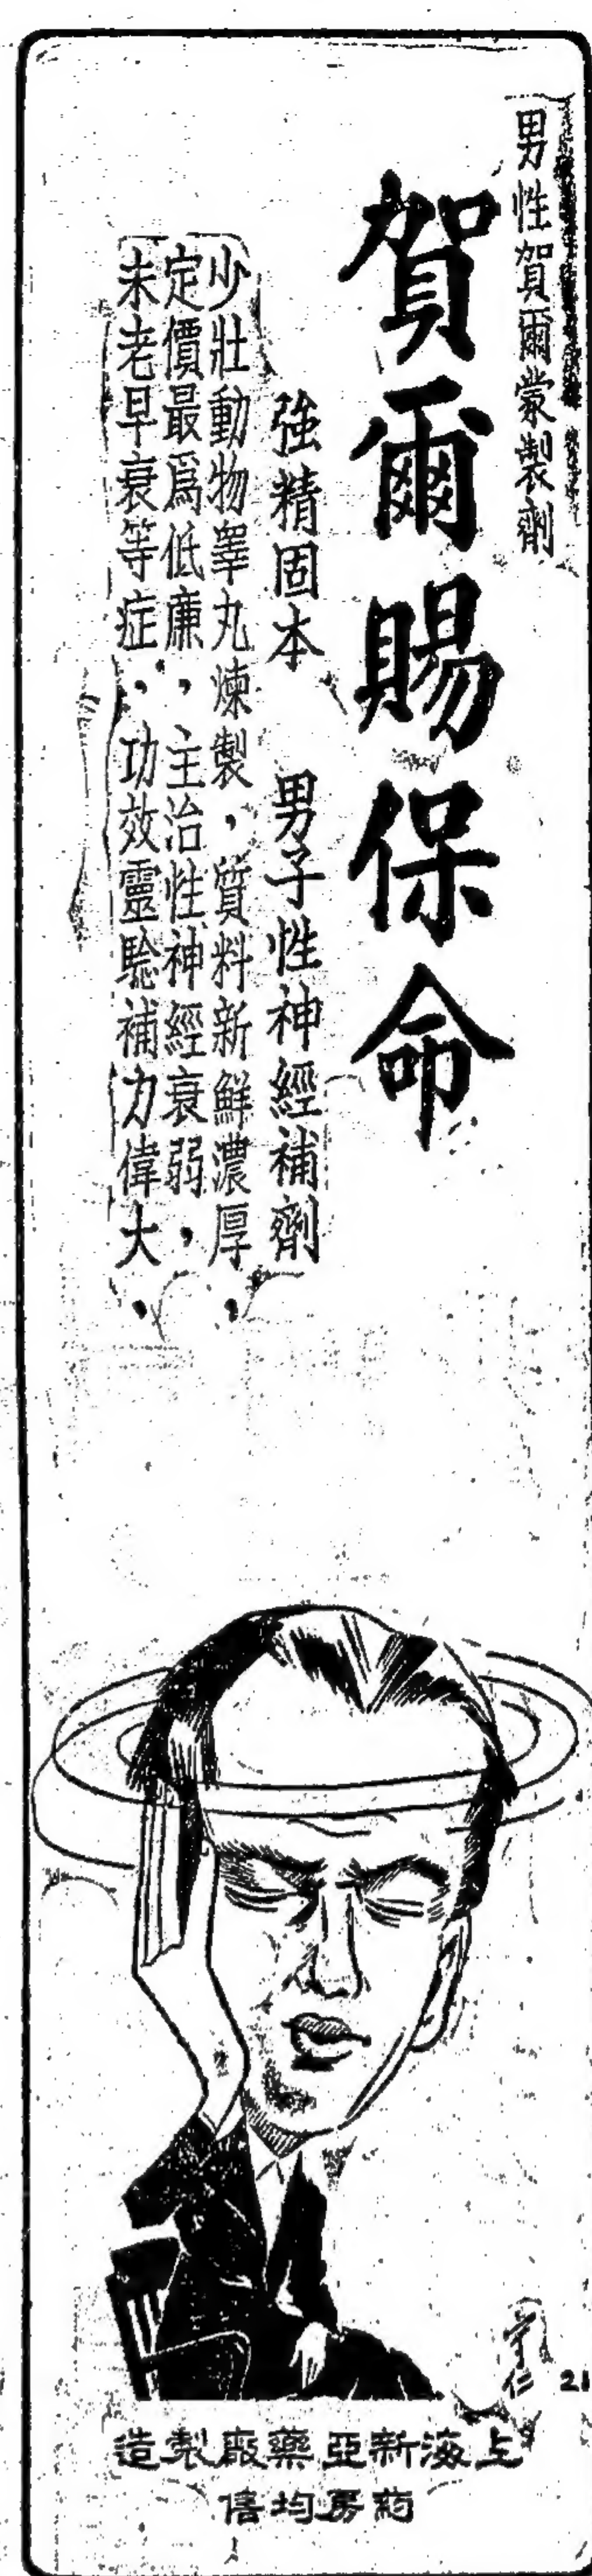 男性賀爾蒙製劑
賀爾賜保命
強精固本 男子性神經補劑
少壯動物睪丸煉製，質料新鮮濃厚，
定價最爲低廉，主治性神經衰弱，
未老早衰等症，功效靈驗補力偉大，
21
上海新亞藥廠製造
药房均售